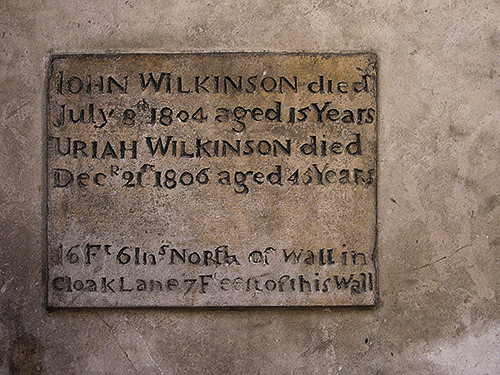 IOHN WILKINSON died
July 8th 1804 aged 15 Years
URIAH WILKINSON died
Decr 21st 1806 aged 45 Years
16 Ft 6 Ins North of Wall in
Cloak Lane 7 Feet of this Wall